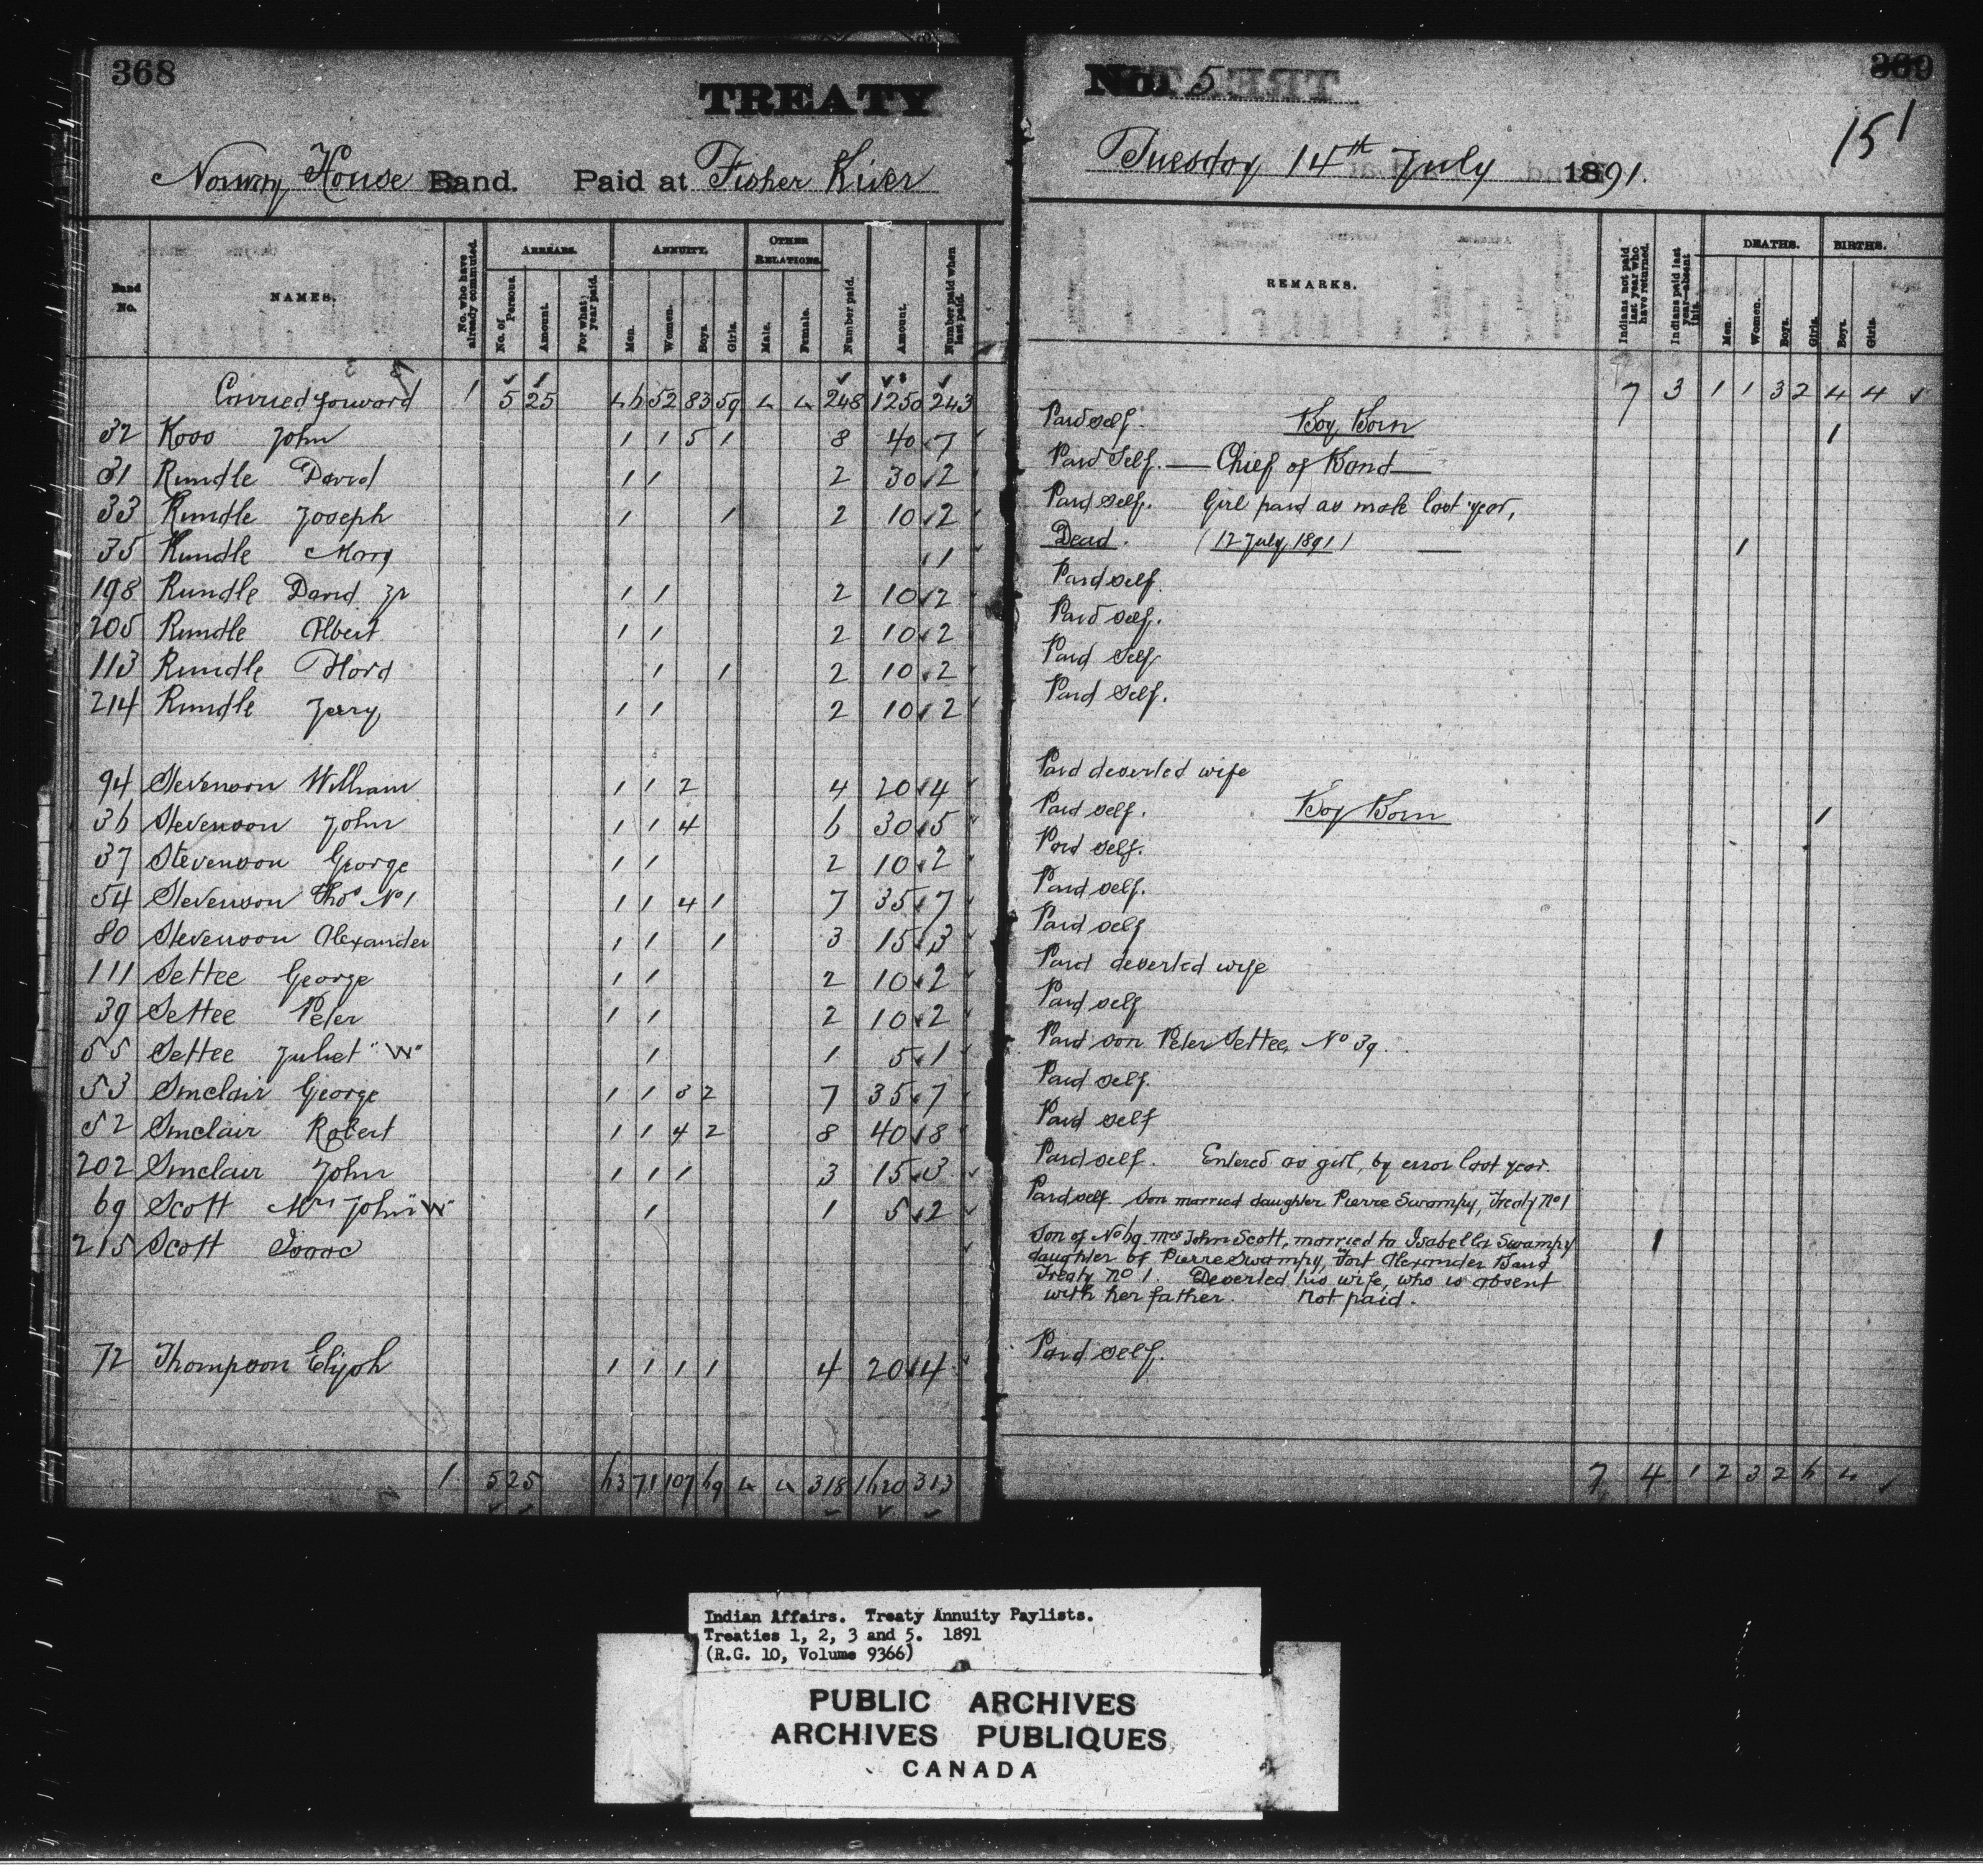 368
TREATY
Norway House Band. Paid at Fisher River
Band No.
NAMES.
No. who have already commuted.
ARREARS.
No. of Persons.
Amount.
For what year paid.
ANNUITY.
Men.
Women.
Boys.
Girls.
OTHER RELATIONS.
Male.
Female.
Number paid.
Amount.
Number paid when last paid.
Carried forward 1 5 25 46 52 83 59 4 4 248 1250 243
32 Ross John 1 1 5 1 8 40 7
31 Rundle David 1 1 2 30 2
33 Rundle Joseph 1 1 2 10 2
35 Rundle Mary 1
198 Rundle David Jr 1 1 2 10 2
205 Rundle Albert 1 1 2 10 2
113 Rundle Flora 1 1 2 10 2
214 Rundle Jerry 1 1 2 10 2
94 Stevenson William 1 1 2 4 20 4
36 Stevenson John 1 1 4 6 30 5
37 Stevenson George 1 1 2 10 2
54 Stevenson Thos No 1 1 1 4 1 7 35 7
80 Stevenson Alexander 1 1 1 3 15 3
111 Settee George 1 1 2 10 2
39 Settee Peter 1 1 2 10 2
55 Settee Juliet "W" 1 1 5 1
53 Sinclair George 1 1 3 2 7 35 7
52 Sinclair Robert 1 1 4 2 8 40 8
202 Sinclair John 1 1 1 3 15 3
69 Scott Mrs John "W" 1 1 5 2
215 Scott Isaac
72 Thompson Elijah 1 1 1 1 4 20 4
1 5 25 63 71 107 69 4 4 318 1620 313
No. 5
369
151
Tuesday 14th July 1891.
REMARKS.
Indians not paid last year who have returned.
Indians paid last year—absent this.
DEATHS.
Men.
Women.
Boys.
Girls.
BIRTHS.
Boys.
Girls.
7 3 1 1 3 2 4 4
Paid self. Boy Born 1
Paid Self. — Chief of Band —
Paid Self. Girl paid as male last year,
Dead. (12 July, 1891) — 1
Paid self.
Paid self.
Paid Self
Paid Self.
Paid deserted wife
Paid self. Boy Born 1
Paid self.
Paid self.
Paid self
Paid deserted wife
Paid self
Paid son Peter Settee, No 39.
Paid self.
Paid self
Paid self. Entered as girl, by error last year.
Paid self Son married daughter Pierre Swampy, Treaty No 1
Son of No 69 Mrs John Scott, married to Isabella Swampy 1
daughter of Pierre Swampy, Fort Alexander Band
Treaty No 1. Deserted his wife, who is absent
with her father. Not paid.
Paid self.
7 4 1 2 3 2 6 4
Indian Affairs. Treaty Annuity Paylists.
Treaties 1, 2, 3 and 5. 1891
(R.G. 10, Volume 9366)
PUBLIC ARCHIVES
ARCHIVES PUBLIQUES
CANADA